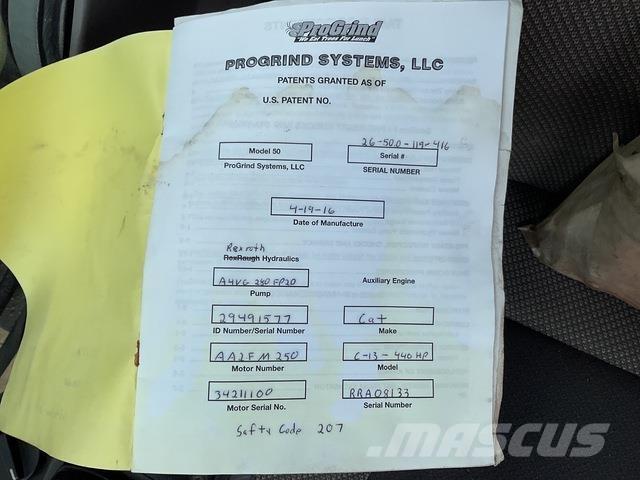 ProGrind
"We Eat Trees For Lunch"
PROGRIND SYSTEMS, LLC
PATENTS GRANTED AS OF
U.S. PATENT NO.
26-500-119-416
Model 50
Serial #
ProGrind Systems, LLC
SERIAL NUMBER
4-19-16
Date of Manufacture
Rexroth
RoxRough Hydraulics
A4VG 250 FP20
Auxiliary Engine
Pump
29491577
Cat
ID Number/Serial Number
Make
AA2FM250
C-13-440HP
Motor Number
Model
34211100
RRA08133
Motor Serial No.
Serial Number
Safty Code 207
MASCUS